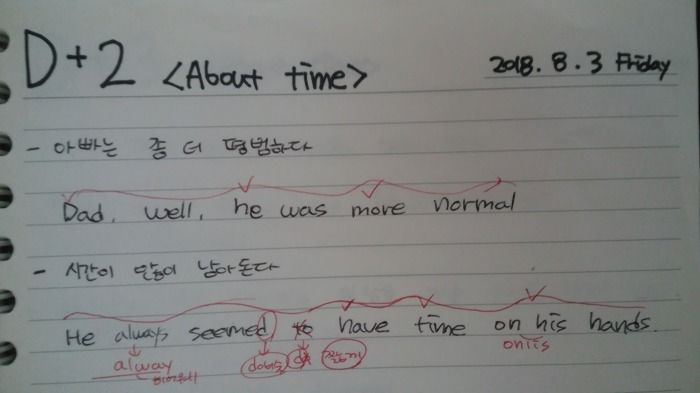 D+2 <About time> 2018. 8. 3 Friday
- 아빠는 좀 더 평범하다
Dad, well, he was more normal
- 시간이 많이 남아돈다
He always seemed to have time on his hands.
alway onיis